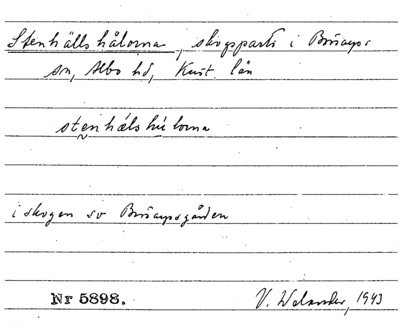 Stenhällshålorna, skogsparti i Brösarps
sn, Albo hd, Krist. län
stenhælshúlorna
i skogen sv Brösarpsgården
Nr 5898. V. Welander, 1943